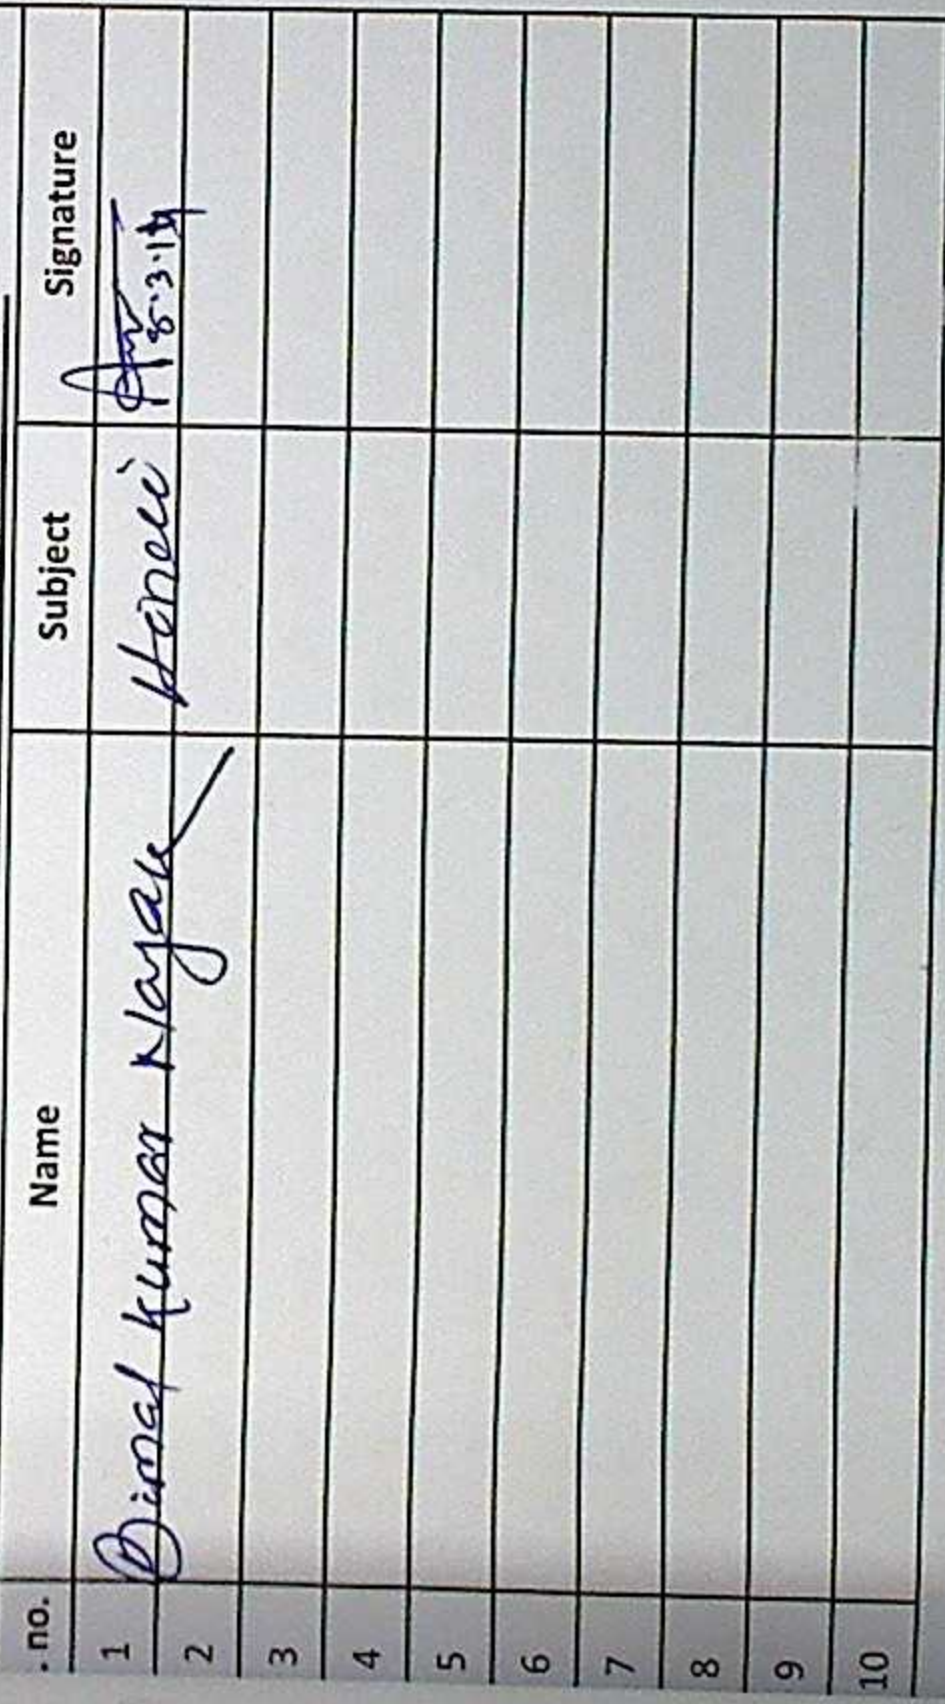 . no. Name Subject Signature
1 Bimal Kumar Nayak
8.3.14
2
3
4
5
6
7
8
9
10